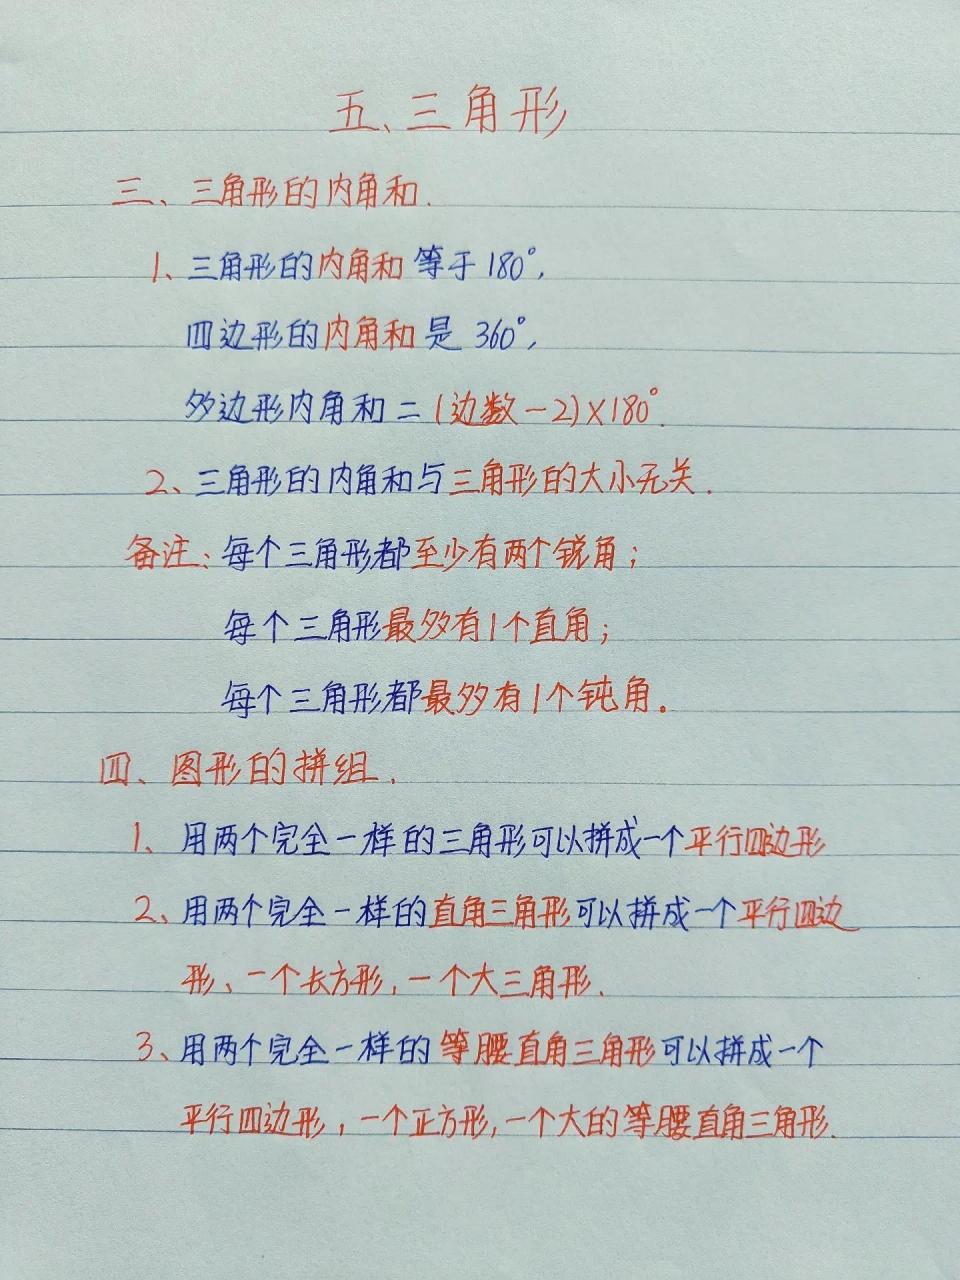 五、三角形
三、三角形的内角和.
1、三角形的内角和等于180°,
四边形的内角和是360°,
多边形内角和=(边数-2)×180°.
2、三角形的内角和与三角形的大小无关.
备注:每个三角形都至少有两个锐角;
每个三角形最多有1个直角;
每个三角形都最多有1个钝角.
四、图形的拼组.
1、用两个完全一样的三角形可以拼成一个平行四边形
2、用两个完全一样的直角三角形可以拼成一个平行四边
形、一个长方形,一个大三角形.
3、用两个完全一样的等腰直角三角形可以拼成一个
平行四边形,一个正方形,一个大的等腰直角三角形.